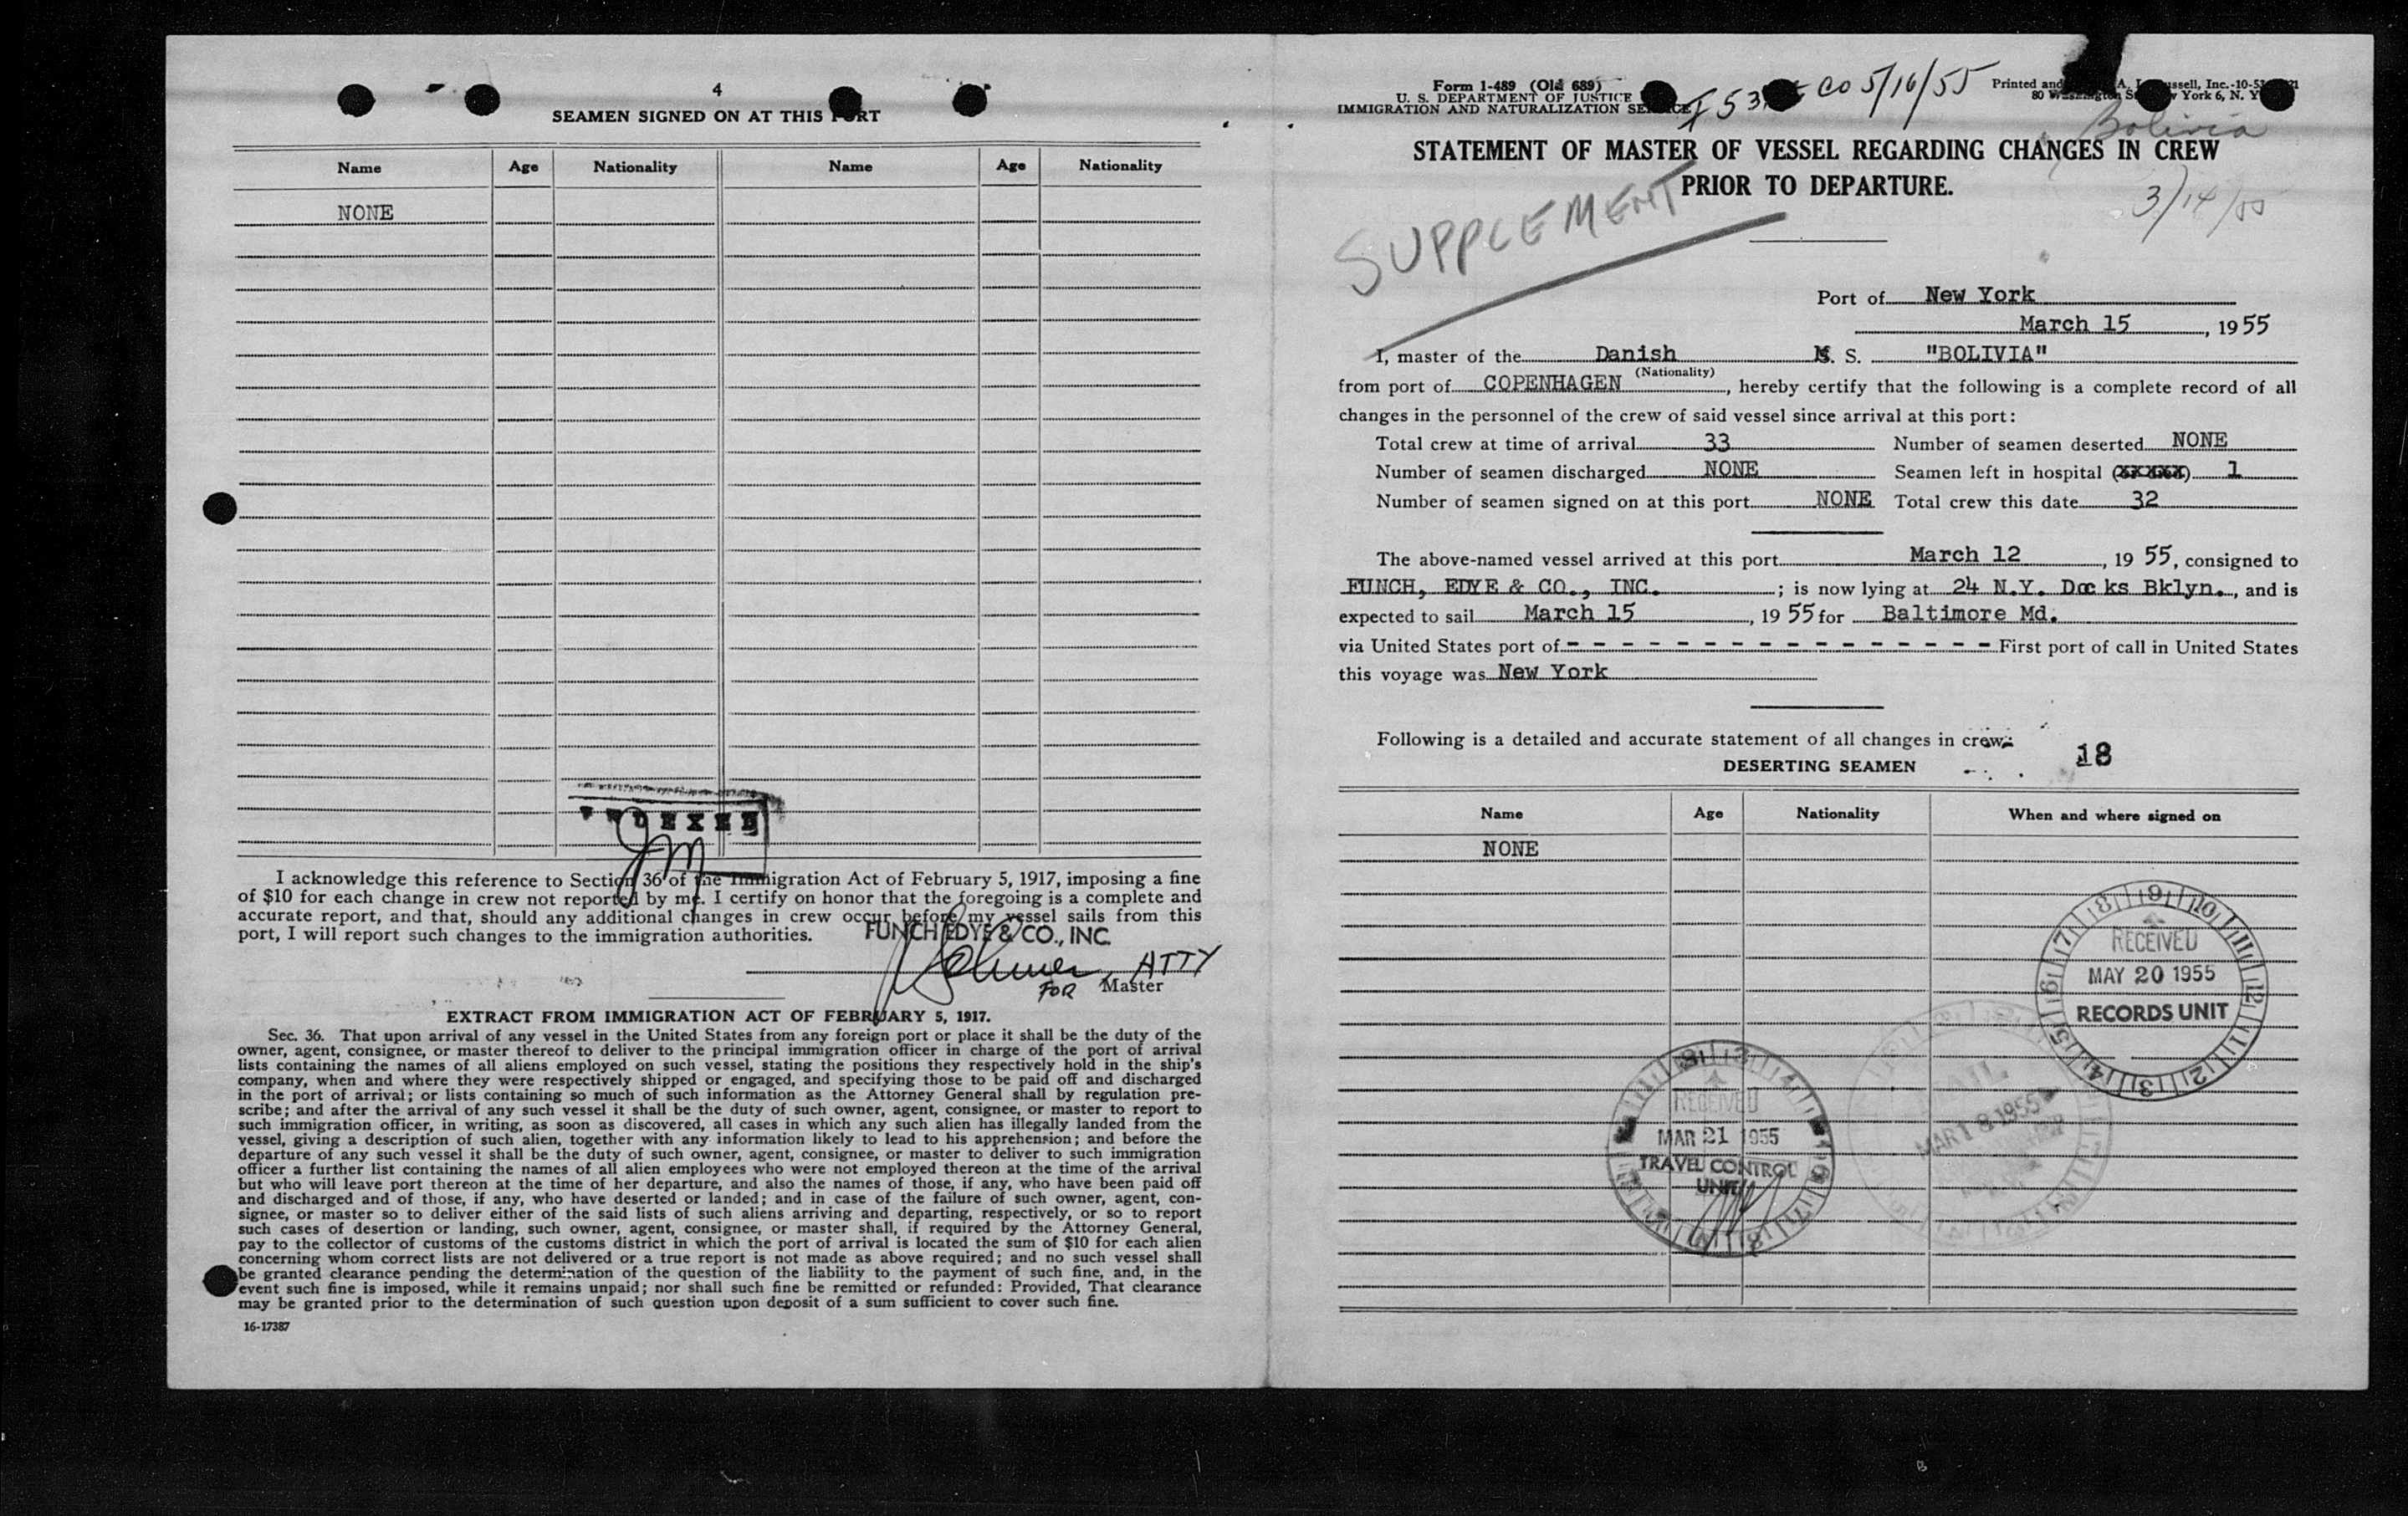 4
SEAMEN SIGNED ON AT THIS PORT
Name Age Nationality Name Age Nationality
NONE
INDEXED
I acknowledge this reference to Section 36 of the Immigration Act of February 5, 1917, imposing a fine
of $10 for each change in crew not reported by me. I certify on honor that the foregoing is a complete and
accurate report, and that, should any additional changes in crew occur before my vessel sails from this
port, I will report such changes to the immigration authorities.
FUNCH EDYE & CO., INC.
ATTY
FOR Master
EXTRACT FROM IMMIGRATION ACT OF FEBRUARY 5, 1917.
Sec. 36. That upon arrival of any vessel in the United States from any foreign port or place it shall be the duty of the
owner, agent, consignee, or master thereof to deliver to the principal immigration officer in charge of the port of arrival
lists containing the names of all aliens employed on such vessel, stating the positions they respectively hold in the ship's
company, when and where they were respectively shipped or engaged, and specifying those to be paid off and discharged
in the port of arrival; or lists containing so much of such information as the Attorney General shall by regulation pre-
scribe; and after the arrival of any such vessel it shall be the duty of such owner, agent, consignee, or master to report to
such immigration officer, in writing, as soon as discovered, all cases in which any such alien has illegally landed from the
vessel, giving a description of such alien, together with any information likely to lead to his apprehension; and before the
departure of any such vessel it shall be the duty of such owner, agent, consignee, or master to deliver to such immigration
officer a further list containing the names of all alien employees who were not employed thereon at the time of the arrival
but who will leave port thereon at the time of her departure, and also the names of those, if any, who have been paid off
and discharged and of those, if any, who have deserted or landed; and in case of the failure of such owner, agent, con-
signee, or master so to deliver either of the said lists of such aliens arriving and departing, respectively, or so to report
such cases of desertion or landing, such owner, agent, consignee, or master shall, if required by the Attorney General,
pay to the collector of customs of the customs district in which the port of arrival is located the sum of $10 for each alien
concerning whom correct lists are not delivered or a true report is not made as above required; and no such vessel shall
be granted clearance pending the determination of the question of the liability to the payment of such fine, and, in the
event such fine is imposed, while it remains unpaid; nor shall such fine be remitted or refunded: Provided, That clearance
may be granted prior to the determination of such question upon deposit of a sum sufficient to cover such fine.
16-17387
Form 1-489 (Old 689)
U. S. DEPARTMENT OF JUSTICE
IMMIGRATION AND NATURALIZATION SERVICE
CO 5/16/55
Printed and
80 Washington York 6, N. Y.
Bolivia
STATEMENT OF MASTER OF VESSEL REGARDING CHANGES IN CREW
PRIOR TO DEPARTURE.
3/14/55
SUPPLEMENT
Port of New York
March 15, 1955
I, master of the Danish M. S. "BOLIVIA"
(Nationality)
from port of COPENHAGEN, hereby certify that the following is a complete record of all
changes in the personnel of the crew of said vessel since arrival at this port:
Total crew at time of arrival 33 Number of seamen deserted NONE
Number of seamen discharged NONE Seamen left in hospital (xxxxx) 1
Number of seamen signed on at this port NONE Total crew this date 32
The above-named vessel arrived at this port March 12, 1955, consigned to
FUNCH, EDYE & CO., INC. ; is now lying at 24 N.Y. Docks Bklyn., and is
expected to sail March 15, 1955 for Baltimore Md.
via United States port of - - - - - - - - - - - - - - - - First port of call in United States
this voyage was New York
Following is a detailed and accurate statement of all changes in crew:
18
DESERTING SEAMEN
Name Age Nationality When and where signed on
NONE
RECEIVED
MAY 20 1955
RECORDS UNIT
RECEIVED
MAR 21 1955
TRAVEL CONTROL
UNIT
MAIL
MAR 18 1955